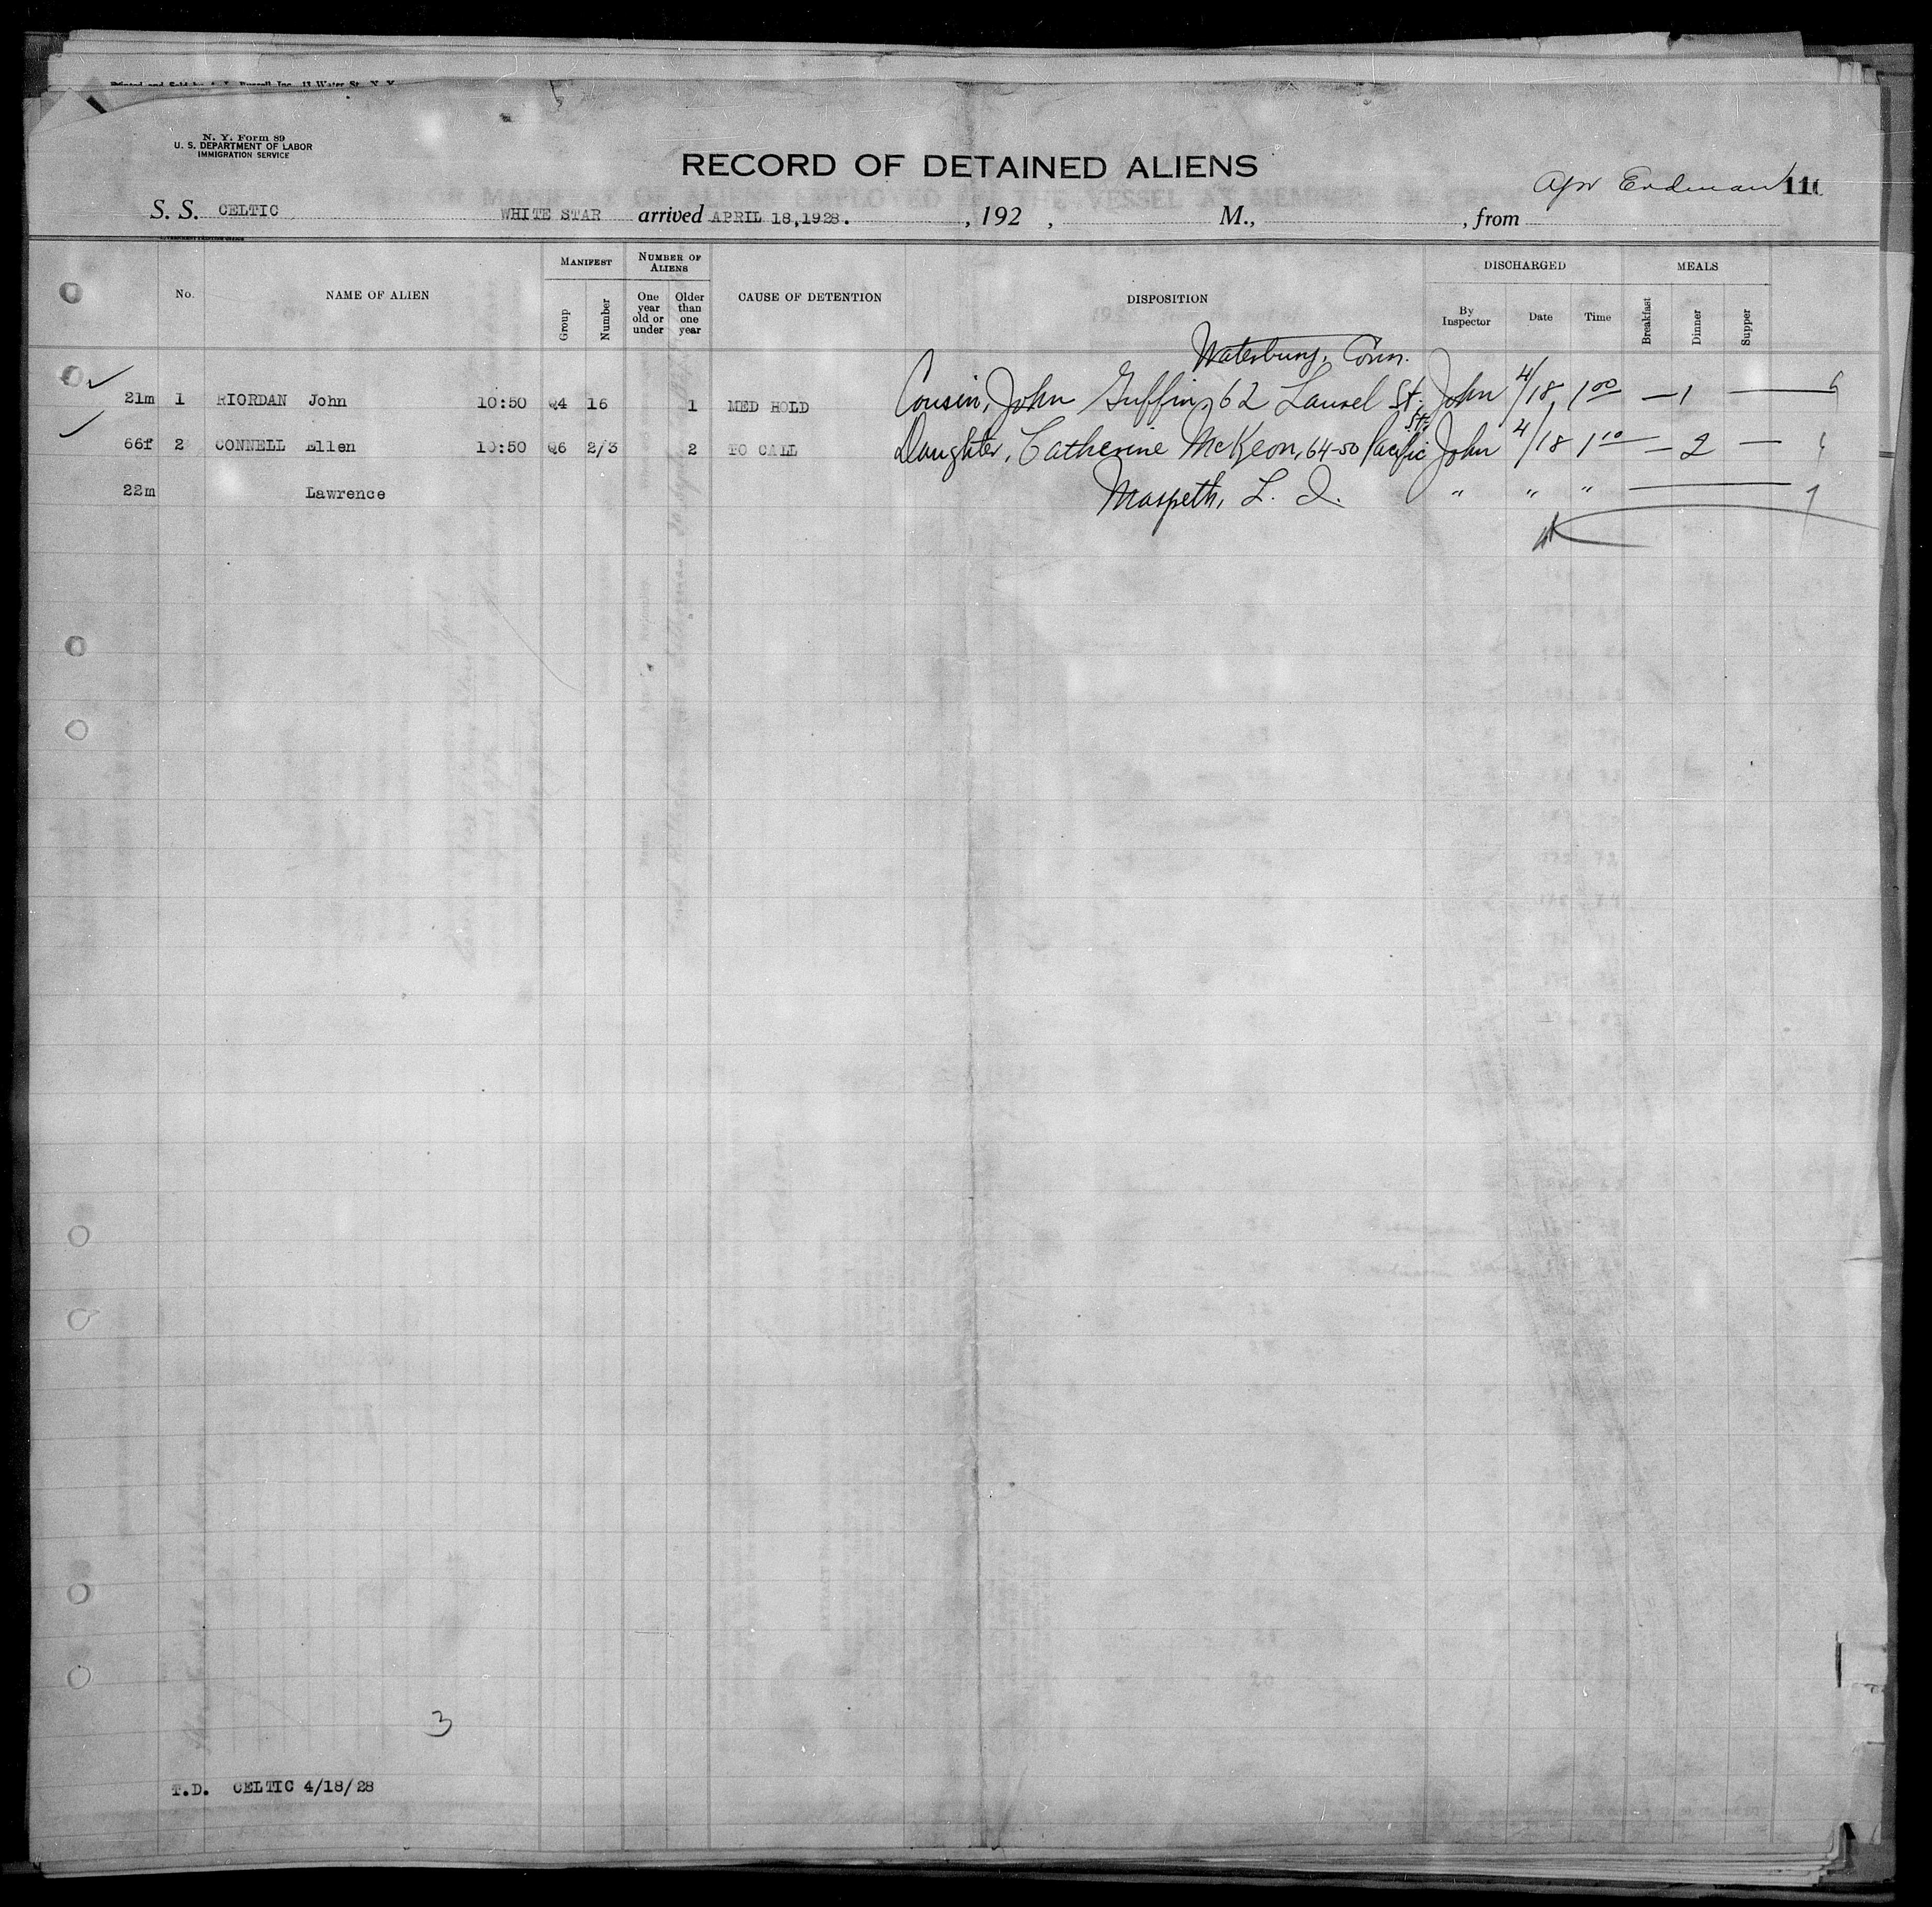 N. Y. Form 89
U. S. DEPARTMENT OF LABOR
IMMIGRATION SERVICE
RECORD OF DETAINED ALIENS
Erdman 110
S. S. CELTIC WHITE STAR arrived APRIL 18,1928. , 192 , M., , from
No. NAME OF ALIEN MANIFEST NUMBER OF ALIENS CAUSE OF DETENTION DISPOSITION DISCHARGED MEALS
Group Number One year old or under Older than one year By Inspector Date Time Breakfast Dinner Supper
Waterbury, Conn.
21m 1 RIORDAN John 10:50 Q4 16 1 MED HOLD Cousin, John Griffin, 62 Laurel St. John 4/18 1 00 — 1 —
66f 2 CONNELL Ellen 10:50 Q6 2/3 2 TO CALL Daughter, Catherine McKeon, 64-50 Pacific St. John 4/18 1 10 — 2 —
22m Lawrence Maspeth, L. I. " " " —
3
T.D. CELTIC 4/18/28